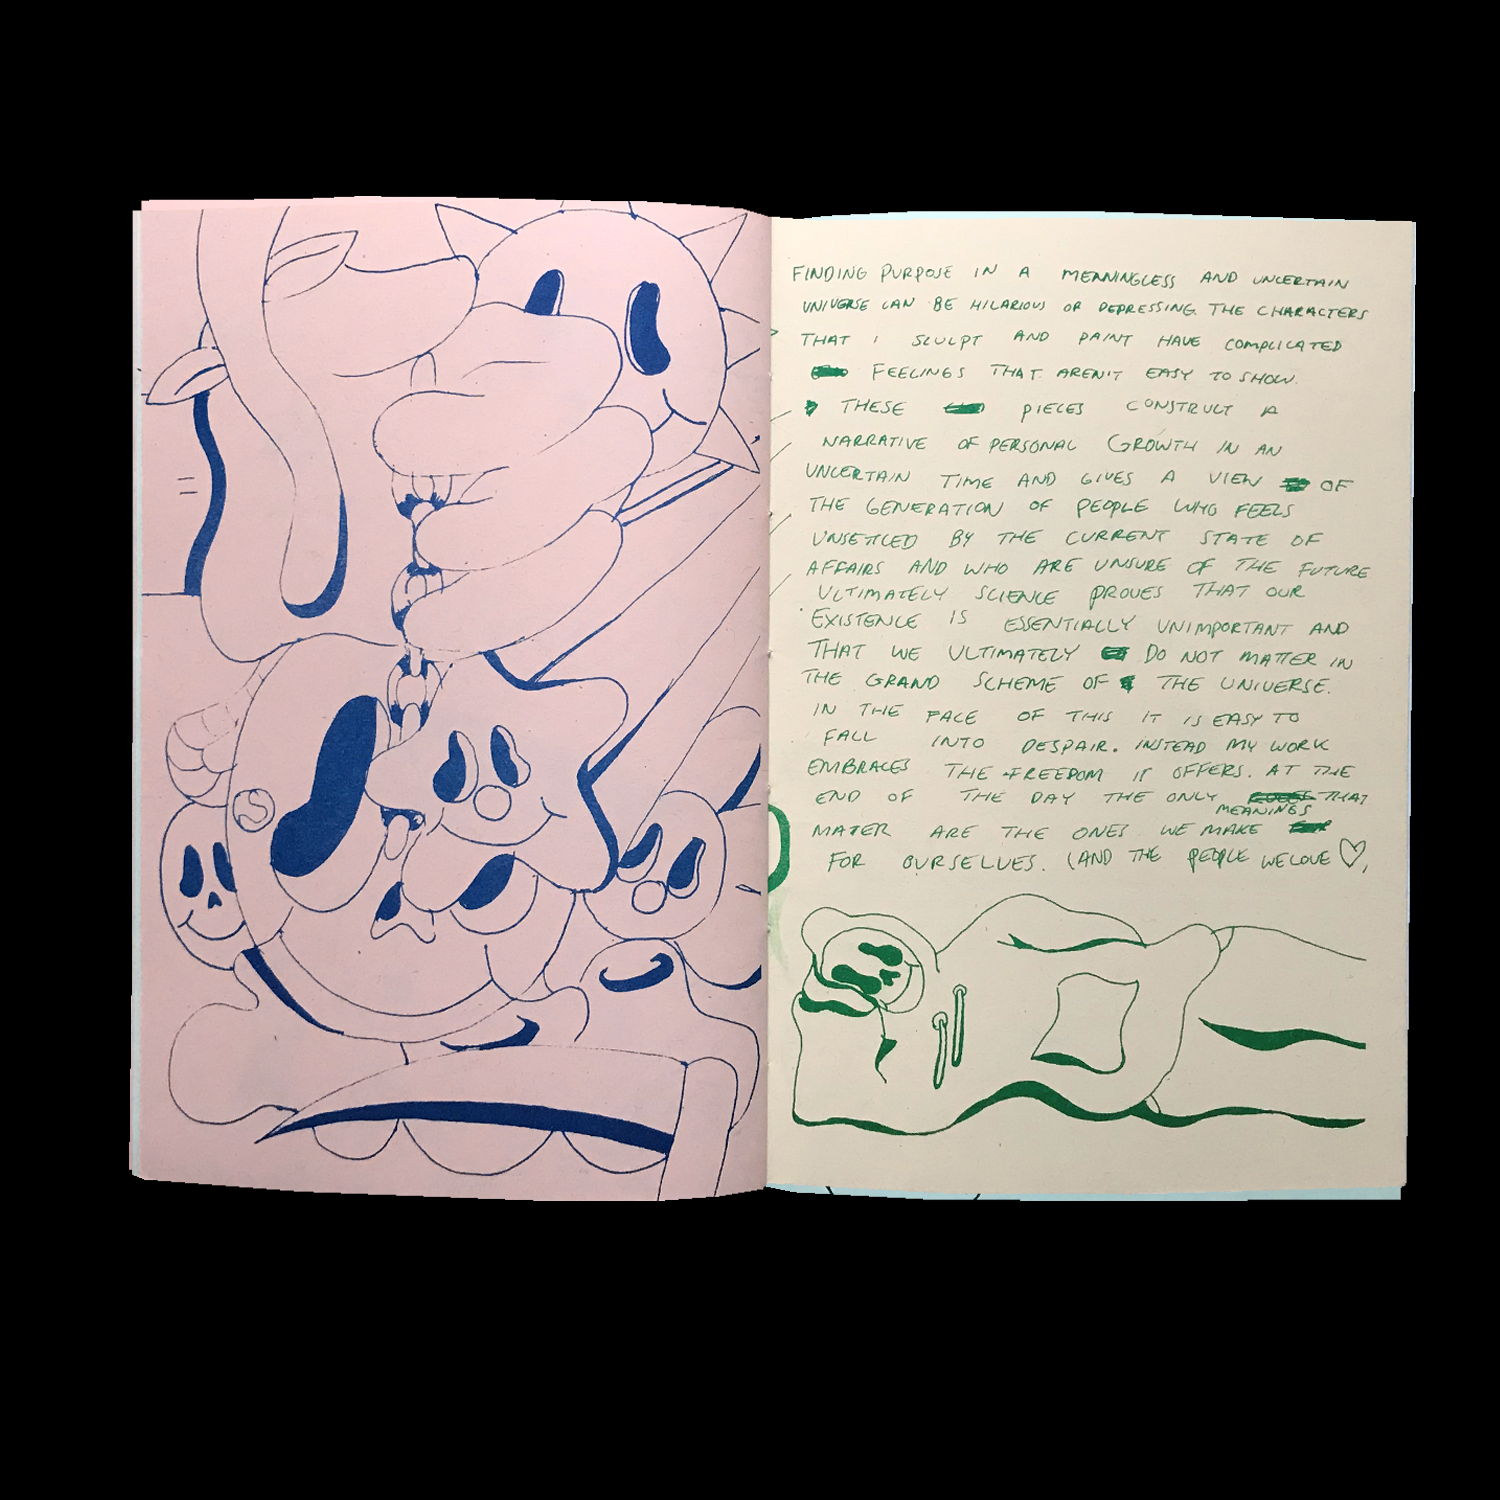 FINDING PURPOSE IN A MEANINGLESS AND UNCERTAIN
UNIVERSE CAN BE HILARIOUS OR DEPRESSING. THE CHARACTERS
THAT I SCULPT AND PAINT HAVE COMPLICATED
FEELINGS THAT AREN'T EASY TO SHOW.
THESE PIECES CONSTRUCT A
NARRATIVE OF PERSONAL GROWTH IN AN
UNCERTAIN TIME AND GIVES A VIEW OF
THE GENERATION OF PEOPLE WHO FEELS
UNSETTLED BY THE CURRENT STATE OF
AFFAIRS AND WHO ARE UNSURE OF THE FUTURE
ULTIMATELY SCIENCE PROVES THAT OUR
EXISTENCE IS ESSENTIALLY UNIMPORTANT AND
THAT WE ULTIMATELY DO NOT MATTER IN
THE GRAND SCHEME OF THE UNIVERSE.
IN THE FACE OF THIS IT IS EASY TO
FALL INTO DESPAIR. INSTEAD MY WORK
EMBRACES THE FREEDOM IT OFFERS. AT THE
END OF THE DAY THE ONLY THAT
MEANINGS
MATER ARE THE ONES WE MAKE
FOR OURSELVES. (AND THE PEOPLE WE LOVE ♡,
S